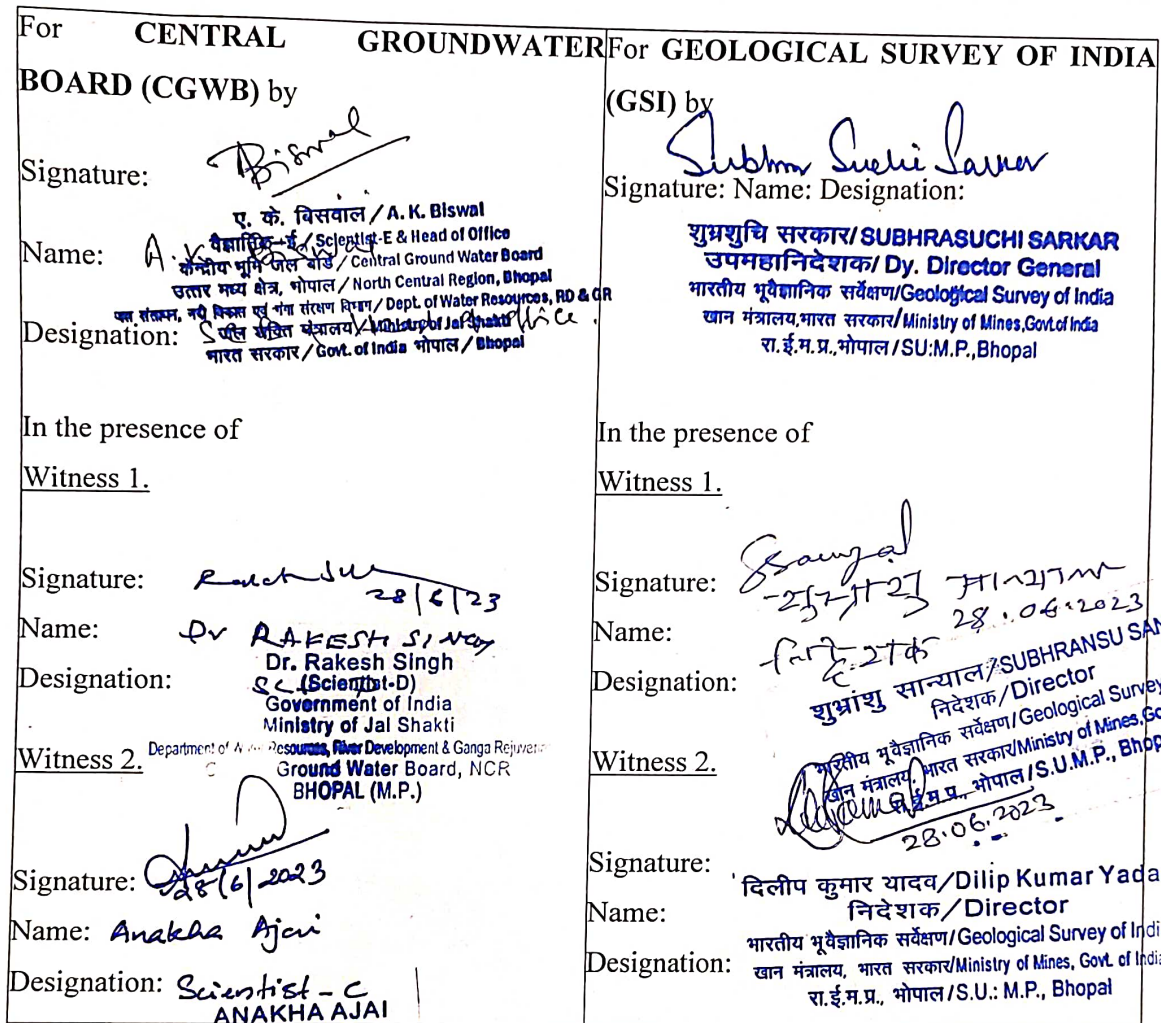 For CENTRAL GROUNDWATER
BOARD (CGWB) by
Signature: Biswal
ए. के. बिसवाल / A. K. Biswal
वैज्ञानिक-ई / Scientist-E & Head of Office
Name: A. K.
केन्द्रीय भूमि जल बोर्ड / Central Ground Water Board
उत्तर मध्य क्षेत्र, भोपाल / North Central Region, Bhopal
जल संसाधन, नदी विकास एवं गंगा संरक्षण विभाग / Dept. of Water Resources, RD & GR
Designation: office.
जल शक्ति मंत्रालय / Ministry of Jal Shakti
भारत सरकार / Govt. of India भोपाल / Bhopal
In the presence of
Witness 1.
Signature:
28/6/23
Name: Dr RAKESH SINGH
Dr. Rakesh Singh
Designation:
(Scientist-D)
Government of India
Ministry of Jal Shakti
Witness 2.
Department of Resources, River Development & Ganga Rejuven
Ground Water Board, NCR
BHOPAL (M.P.)
Signature:
28/6/2023
Name: Anakha Ajai
Designation: Scientist - C
ANAKHA AJAI
For GEOLOGICAL SURVEY OF INDIA
(GSI) by
Subhra Suchi Sarkar
Signature: Name: Designation:
शुभ्रशुचि सरकार/SUBHRASUCHI SARKAR
उपमहानिदेशक/Dy. Director General
भारतीय भूवैज्ञानिक सर्वेक्षण/Geological Survey of India
खान मंत्रालय,भारत सरकार/Ministry of Mines,Govt.of India
रा.ई.म.प्र.,भोपाल/SU:M.P.,Bhopal
In the presence of
Witness 1.
Signature:
28.06.2023
Name:
Designation:
शुभ्रांशु सान्याल/SUBHRANSU SAN
निदेशक/Director
भारतीय भूवैज्ञानिक सर्वेक्षण/Geological Survey
खान मंत्रालय, भारत सरकार/Ministry of Mines,Go
रा.ई.म.प्र., भोपाल/S.U.M.P., Bhop
Witness 2.
28.06.2023
Signature:
दिलीप कुमार यादव/Dilip Kumar Yada
Name:
निदेशक/Director
भारतीय भूवैज्ञानिक सर्वेक्षण/Geological Survey of Indi
Designation:
खान मंत्रालय, भारत सरकार/Ministry of Mines, Govt. of India
रा.ई.म.प्र., भोपाल/S.U.: M.P., Bhopal